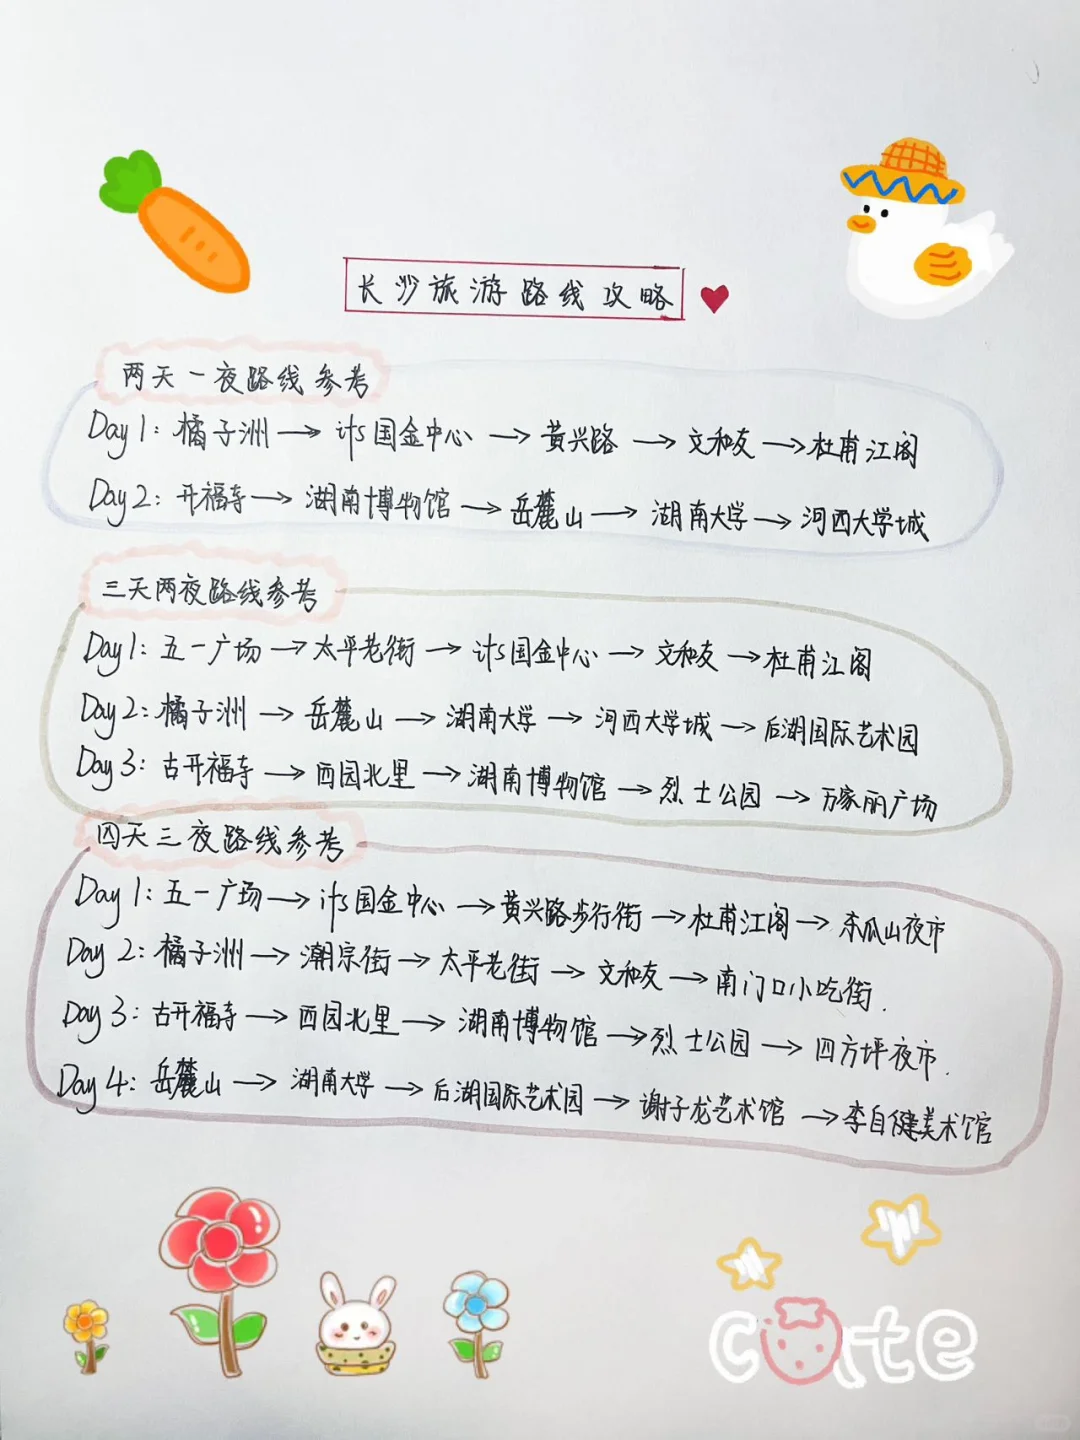 长沙旅游路线攻略
两天一夜路线参考
Day1: 橘子洲→ifs国金中心→黄兴路→文和友→杜甫江阁
Day2: 开福寺→湖南博物馆→岳麓山→湖南大学→河西大学城
三天两夜路线参考
Day1: 五一广场→太平老街→ifs国金中心→文和友→杜甫江阁
Day2: 橘子洲→岳麓山→湖南大学→河西大学城→后湖国际艺术园
Day3: 古开福寺→西园北里→湖南博物馆→烈士公园→万家丽广场
四天三夜路线参考
Day1: 五一广场→ifs国金中心→黄兴路步行街→杜甫江阁→东瓜山夜市
Day2: 橘子洲→潮宗街→太平老街→文和友→南门口小吃街.
Day3: 古开福寺→西园北里→湖南博物馆→烈士公园→四方坪夜市.
Day4: 岳麓山→湖南大学→后湖国际艺术园→谢子龙艺术馆→李自健美术馆